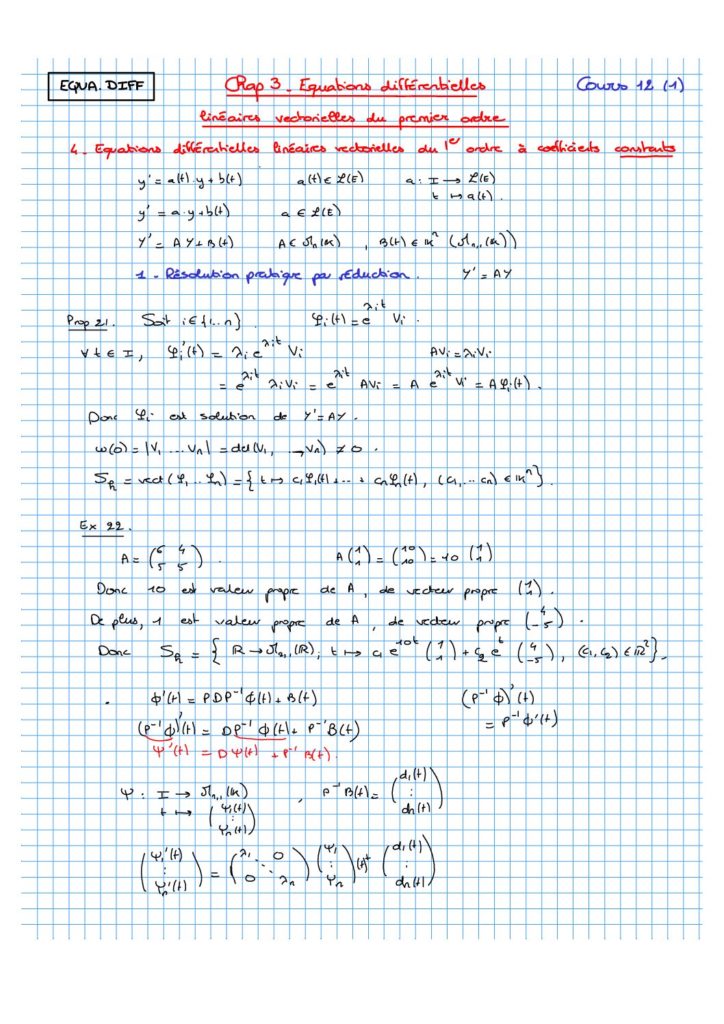 EQUA. DIFF
Chap 3 - Equations différentielles
Cours 12 (1)
linéaires vectorielles du premier ordre
4 - Equations différentielles linéaires vectorielles du 1er ordre à coefficients constants
y' = a(t).y + b(t)    a(t) ∈ L(E)    a : I → L(E)
t ↦ a(t).
y' = a.y + b(t)    a ∈ L(E)
Y' = AY + B(t)    A ∈ Mn(K) , B(t) ∈ Kⁿ (Mn,1(K))
1 - Résolution pratique par réduction.    Y' = AY
Prop 21.    Soit i ∈ {1...n}.    φi(t) = e^{λit} Vi.
∀ t ∈ I, φi'(t) = λi e^{λit} Vi    AVi = λiVi
= e^{λit} λiVi = e^{λit} AVi = A e^{λit} Vi = Aφi(t).
Donc φi est solution de Y' = AY.
w(0) = |V1 ... Vn| = det(V1, ..., Vn) ≠ 0.
Sh = vect(φ1, .. φn) = { t ↦ c1φ1(t) + ... + cnφn(t), (c1, ... cn) ∈ Kⁿ }.
Ex 22.
A = (6 4 ; 5 5).    A (1 ; 1) = (10 ; 10) = 10 (1 ; 1)
Donc 10 est valeur propre de A, de vecteur propre (1 ; 1).
De plus, 1 est valeur propre de A, de vecteur propre (4 ; -5).
Donc Sh = { R → M2,1(R); t ↦ c1 e^{10t} (1 ; 1) + c2 e^{t} (4 ; -5), (c1, c2) ∈ R² }.
. φ'(t) = PDP⁻¹ φ(t) + B(t)    (P⁻¹ φ)'(t)
(P⁻¹ φ)'(t) = DP⁻¹ φ(t) + P⁻¹B(t)    = P⁻¹ φ'(t)
Ψ'(t) = DΨ(t) + P⁻¹ B(t).
Ψ : I → Mn,1(K) , P⁻¹ B(t) = (d1(t) ; ⋮ ; dn(t))
t ↦ (Ψ1(t) ; ⋮ ; Ψn(t))
(Ψ1'(t) ; ⋮ ; Ψn'(t)) = (λ1 0 ; ⋱ ; 0 λn) (Ψ1 ; ⋮ ; Ψn)(t) + (d1(t) ; ⋮ ; dn(t))